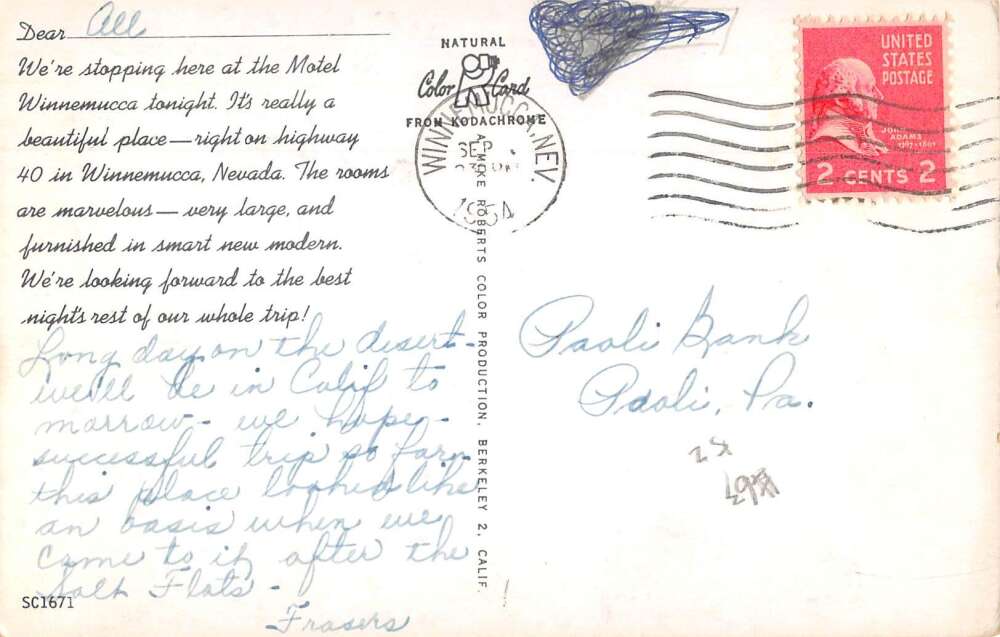 Dear All
We're stopping here at the Motel
Winnemucca tonight. It's really a
beautiful place — right on highway
40 in Winnemucca, Nevada. The rooms
are marvelous — very large, and
furnished in smart new modern.
We're looking forward to the best
night's rest of our whole trip!
Long day on the desert -
we'll be in Calif to
morrow - we hope -
successful trip so far
this place looked like
an oasis when we
came to it after the
Salt Flats -
Frasers
SC1671
NATURAL
Color Card
FROM KODACHROME
A MIKE ROBERTS COLOR PRODUCTION, BERKELEY 2, CALIF.
WINNEMUCCA, NEV.
SEP
1954
UNITED
STATES
POSTAGE
JOHN
ADAMS
1797-1801
2 CENTS 2
Paoli Bank
Paoli, Pa.